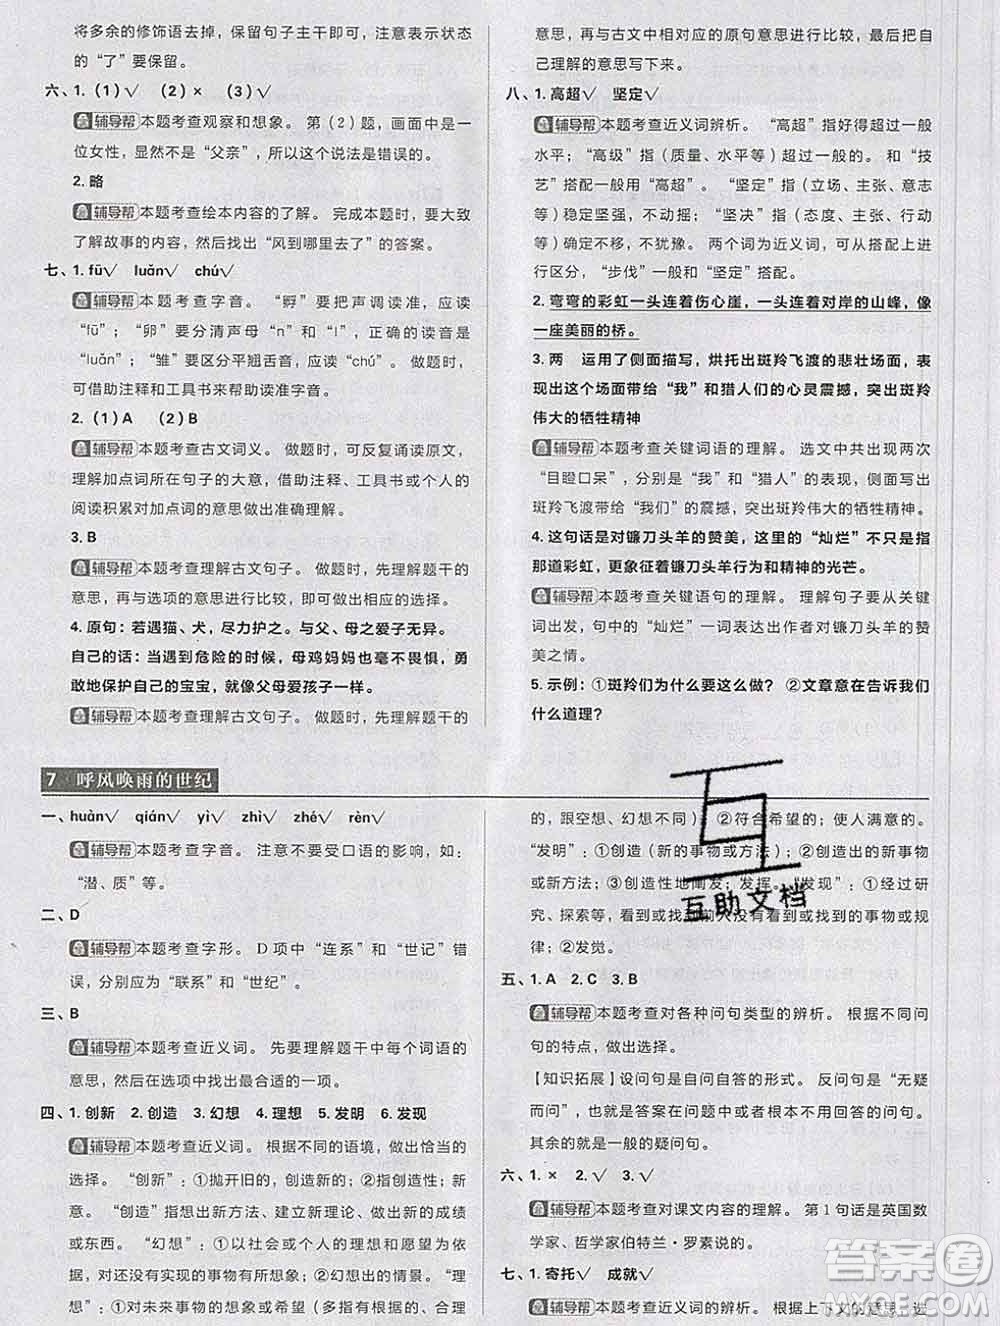 将多余的修饰语去掉，保留句子主干即可，注意表示状态
的“了”要保留。
六、1.(1)√　(2)×　(3)√
辅导帮 本题考查观察和想象。第（2）题，画面中是一
位女性，显然不是“父亲”，所以这个说法是错误的。
2.略
辅导帮 本题考查绘本内容的了解。完成本题时，要大致
了解故事的内容，然后找出“风到哪里去了”的答案。
七、1.fū√　luǎn√　chú√
辅导帮 本题考查字音。“孵”要把声调读准，应读
“fū”；“卵”要分清声母“n”和“l”，正确的读音是
“luǎn”；“雏”要区分平翘舌音，应读“chú”。做题时，
可借助注释和工具书来帮助读准字音。
2.(1)A　(2)B
辅导帮 本题考查古文词义。做题时，可反复诵读原文，
理解加点词所在句子的大意，借助注释、工具书或个人的
阅读积累对加点词的意思做出准确理解。
3.B
辅导帮 本题考查理解古文句子。做题时，先理解题干的
意思，再与选项的意思进行比较，即可做出相应的选择。
4.原句：若遇猫、犬，尽力护之。与父、母之爱子无异。
自己的话：当遇到危险的时候，母鸡妈妈也毫不畏惧，勇
敢地保护自己的宝宝，就像父母爱孩子一样。
辅导帮 本题考查理解古文句子。做题时，先理解题干的
意思，再与古文中相对应的原句意思进行比较，最后把自
己理解的意思写下来。
八、1.高超√　坚定√
辅导帮 本题考查近义词辨析。“高超”指好得超过一般
水平；“高级”指（质量、水平等）超过一般的。和“技
艺”搭配一般用“高超”。“坚定”指（立场、主张、意志
等）稳定坚强，不动摇；“坚决”指（态度、主张、行动
等）确定不移，不犹豫。两个词为近义词，可从搭配上进
行区分，“步伐”一般和“坚定”搭配。
2.弯弯的彩虹一头连着伤心崖，一头连着对岸的山峰，像
一座美丽的桥。
3.两　运用了侧面描写，烘托出斑羚飞渡的悲壮场面，表
现出这个场面带给“我”和猎人们的心灵震撼，突出斑羚
伟大的牺牲精神
辅导帮 本题考查关键词语的理解。选文中共出现两次
“目瞪口呆”，分别是“我”和“猎人”的表现，侧面写出
斑羚飞渡带给“我们”的震撼，突出斑羚伟大的牺牲精神。
4.这句话是对镰刀头羊的赞美，这里的“灿烂”不只是指
那道彩虹，更象征着镰刀头羊行为和精神的光芒。
辅导帮 本题考查关键语句的理解。理解句子要从关键
词出发，句中的“灿烂”一词表达出作者对镰刀头羊的赞
美之情。
5.示例：①斑羚们为什么要这么做？　②文章意在告诉我们
什么道理？
7　呼风唤雨的世纪
一、huàn√　qián√　yì√　zhì√　zhé√　rèn√
辅导帮 本题考查字音。注意不要受口语的影响，如：
“潜、质”等。
二、D
辅导帮 本题考查字形。D项中“连系”和“世记”错
误，分别应为“联系”和“世纪”。
三、B
辅导帮 本题考查近义词。先要理解题干中每个词语的
意思，然后在选项中找出最合适的一项。
四、1.创新　2.创造　3.幻想　4.理想　5.发明　6.发现
辅导帮 本题考查近义词。根据不同的语境，做出恰当的
选择。“创新”：①抛开旧的，创造新的；②指创造性；新
意。“创造”指想出新方法、建立新理论、做出新的成绩
或东西。“幻想”：①以社会或个人的理想和愿望为依据，
对还没有实现的事物有所想象；②幻想出的情景。“理
想”：①对未来事物的想象或希望（多指有根据的、合理
的，跟空想、幻想不同）；②符合希望的；使人满意的。
“发明”：①创造（新的事物或方法）；②创造出的新事物
或新方法；③创造性地阐发；发挥。“发现”：①经过研
究、探索等，看到或找到前人没有看到的事物或规
律；②发觉。
五、1.A　2.C　3.B
辅导帮 本题考查对各种问句类型的辨析。根据不同问
句的特点，做出选择。
【知识拓展】设问句是自问自答的形式。反问句是“无疑
而问”，也就是答案在问题中或者不用回答的问句。
其余的就是一般的疑问句。
六、1.×　2.√　3.√
辅导帮 本题考查对课文内容的理解。第1句话是英国数
学家、哲学家伯特兰·罗素说的。
七、1.寄托√　成就√
辅导帮 本题考查近义词的辨析。根据上下文的意思，选
互助文档
答案圈
MXQE.COM